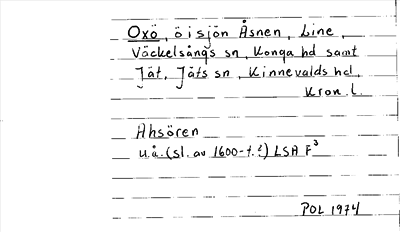 Oxö, ö i sjön Åsnen, Line,
Väckelsångs sn, Konga hd samt
Jät, Jäts sn, Kinnevalds hd,
Kron. l.
Ahsören
u.å. (sl. av 1600-t.?) LSA F³
POL 1974